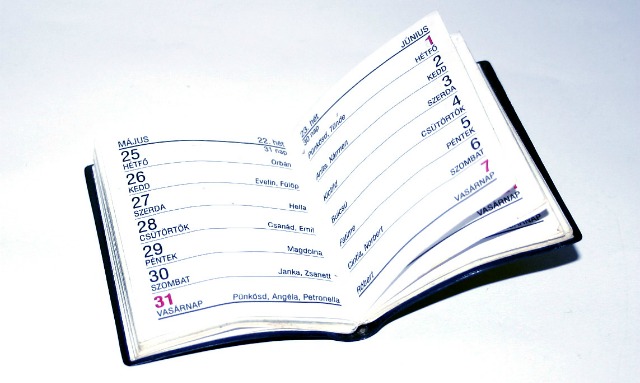 MÁJUS 22. hét
31 nap
25
HÉTFŐ Orbán
26
KEDD Evelin, Fülöp
27
SZERDA Hella
28
CSÜTÖRTÖK Csanád, Emil
29
PÉNTEK Magdolna
30
SZOMBAT Janka, Zsanett
31
VASÁRNAP Pünkösd, Angéla, Petronella
23. hét JÚNIUS
30 nap
1
Pünkösd, Tünde HÉTFŐ
2
Anita, Kármen KEDD
3
Klotild SZERDA
4
Bulcsú CSÜTÖRTÖK
5
Fatime PÉNTEK
6
Cintia, Norbert SZOMBAT
7
Róbert VASÁRNAP
VASÁRNAP